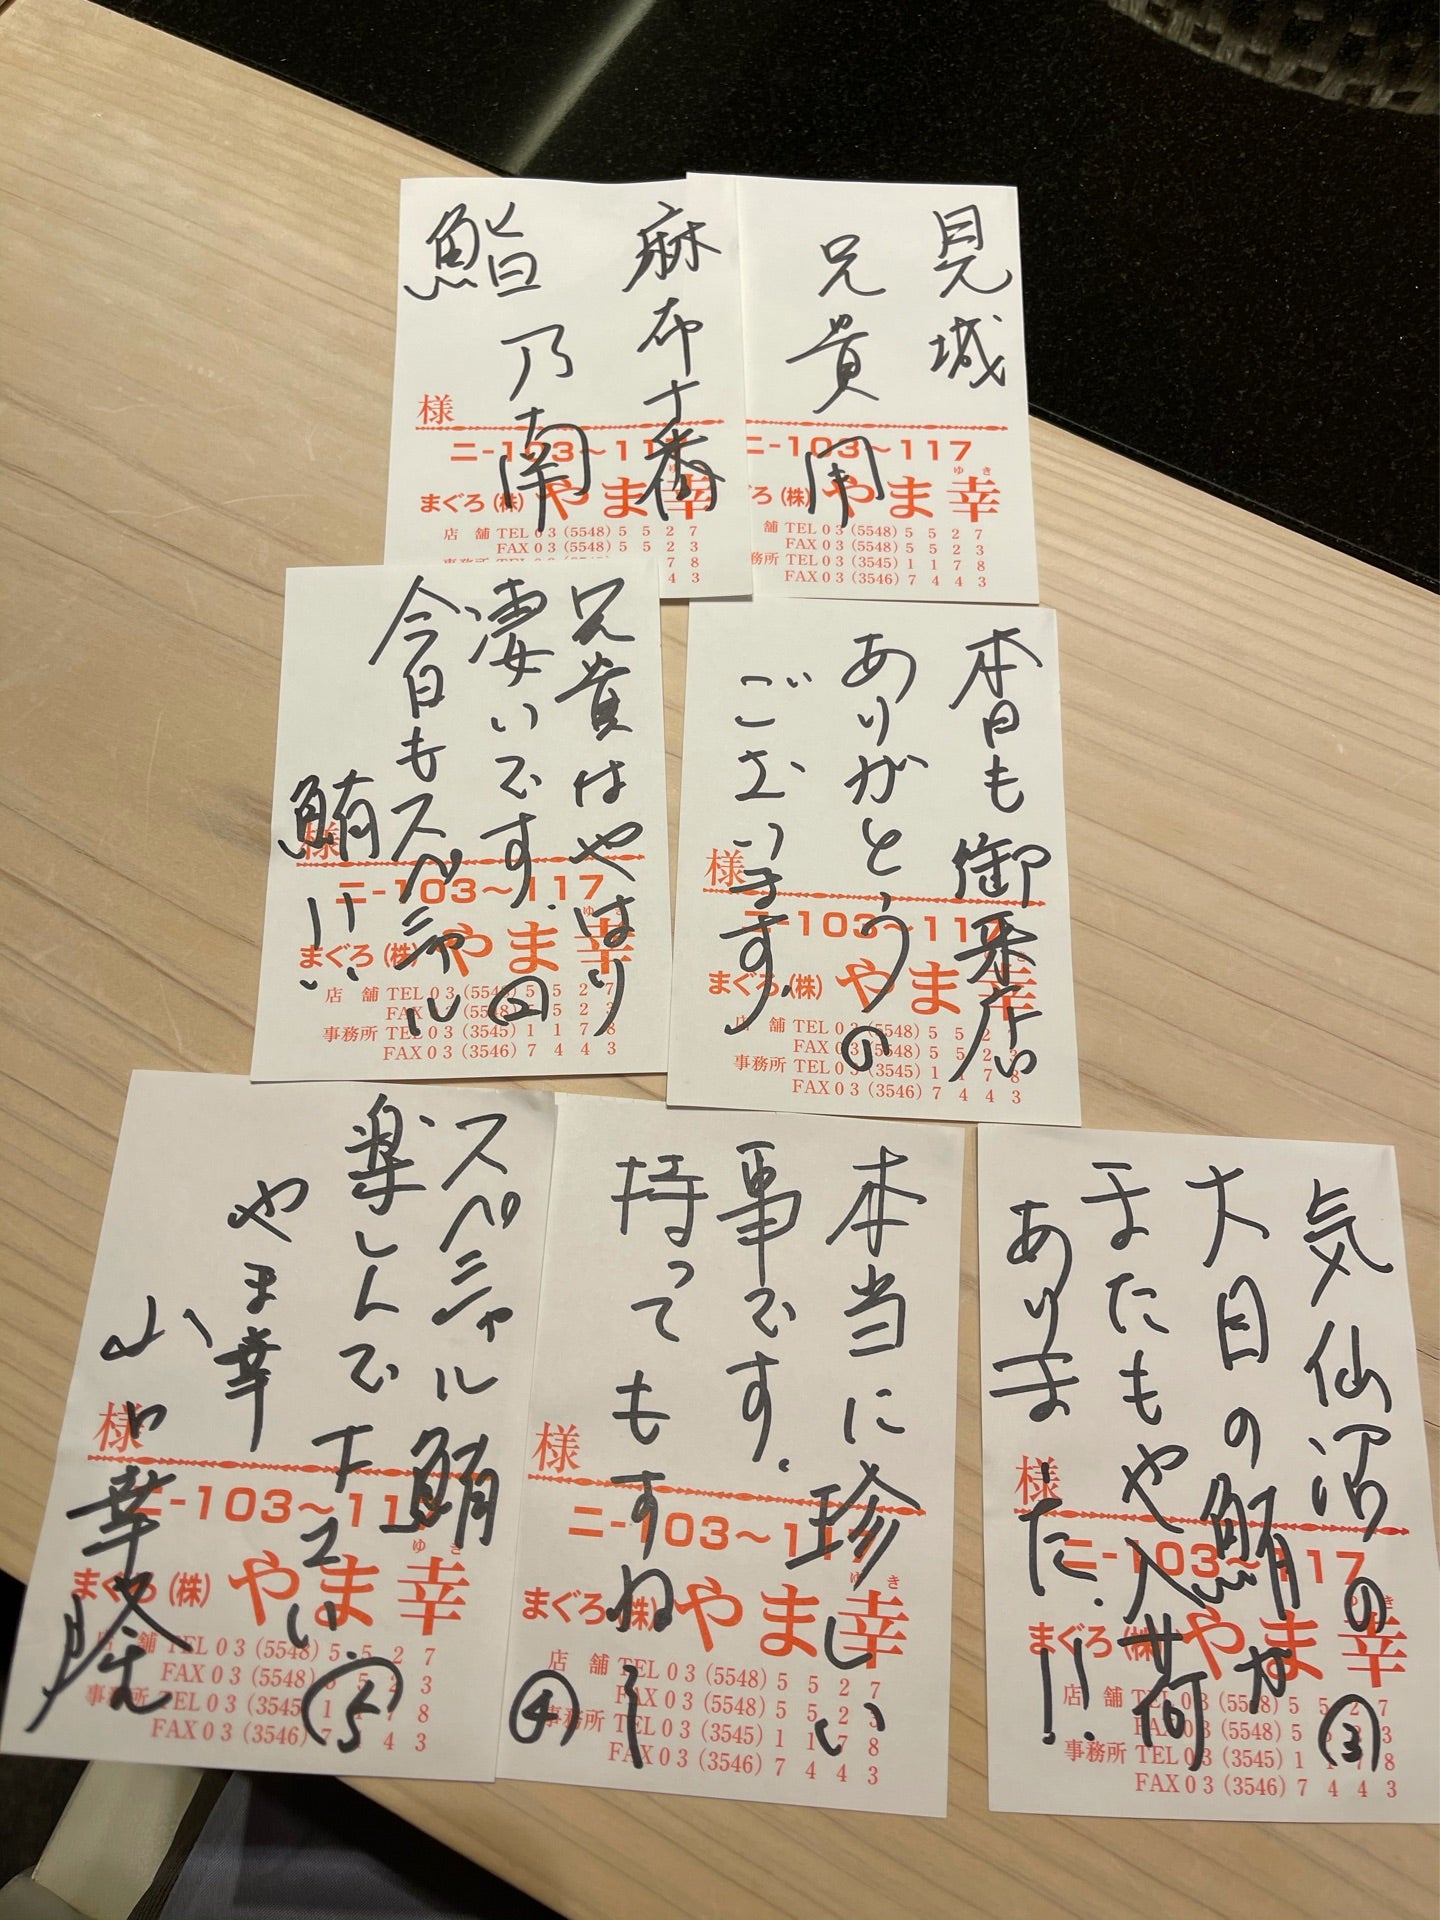 見城
兄貴用
二-103～117
ぐろ(株)やま幸
ゆき
舗 TEL03(5548)5527
FAX03(5548)5523
務所 TEL03(3545)1178
FAX03(3546)7443
麻布十番
鮨乃南
様
二-103～117
まぐろ(株)やま幸
店舗 TEL03(5548)5527
FAX03(5548)5523
本日も御来店
ありがとう
ございます。
①
様
二-103～117
まぐろ(株)やま幸
店舗 TEL03(5548)5527
FAX03(5548)5523
事務所 TEL03(3545)1178
FAX03(3546)7443
兄貴はやはり
凄いです。
今日もスペシャル
鮪!!
②
様
二-103～117
まぐろ(株)やま幸
ゆき
店舗 TEL03(5548)5527
FAX03(5548)5523
事務所 TEL03(3545)1178
FAX03(3546)7443
気仙沼の
大目の鮪が
またもや入荷
ありました!!
③
様
二-103～117
まぐろ(株)やま幸
店舗 TEL03(5548)5527
FAX03(5548)5523
事務所 TEL03(3545)1178
FAX03(3546)7443
本当に珍しい
事です。
持ってますね〜
④
様
二-103～117
まぐろ(株)やま幸
ゆき
店舗 TEL03(5548)5527
FAX03(5548)5523
事務所 TEL03(3545)1178
FAX03(3546)7443
スペシャル鮪
楽しんで下さい。
やま幸
山口幸隆
⑤
様
二-103～117
まぐろ(株)やま幸
ゆき
店舗 TEL03(5548)5527
FAX03(5548)5523
事務所 TEL03(3545)1178
FAX03(3546)7443